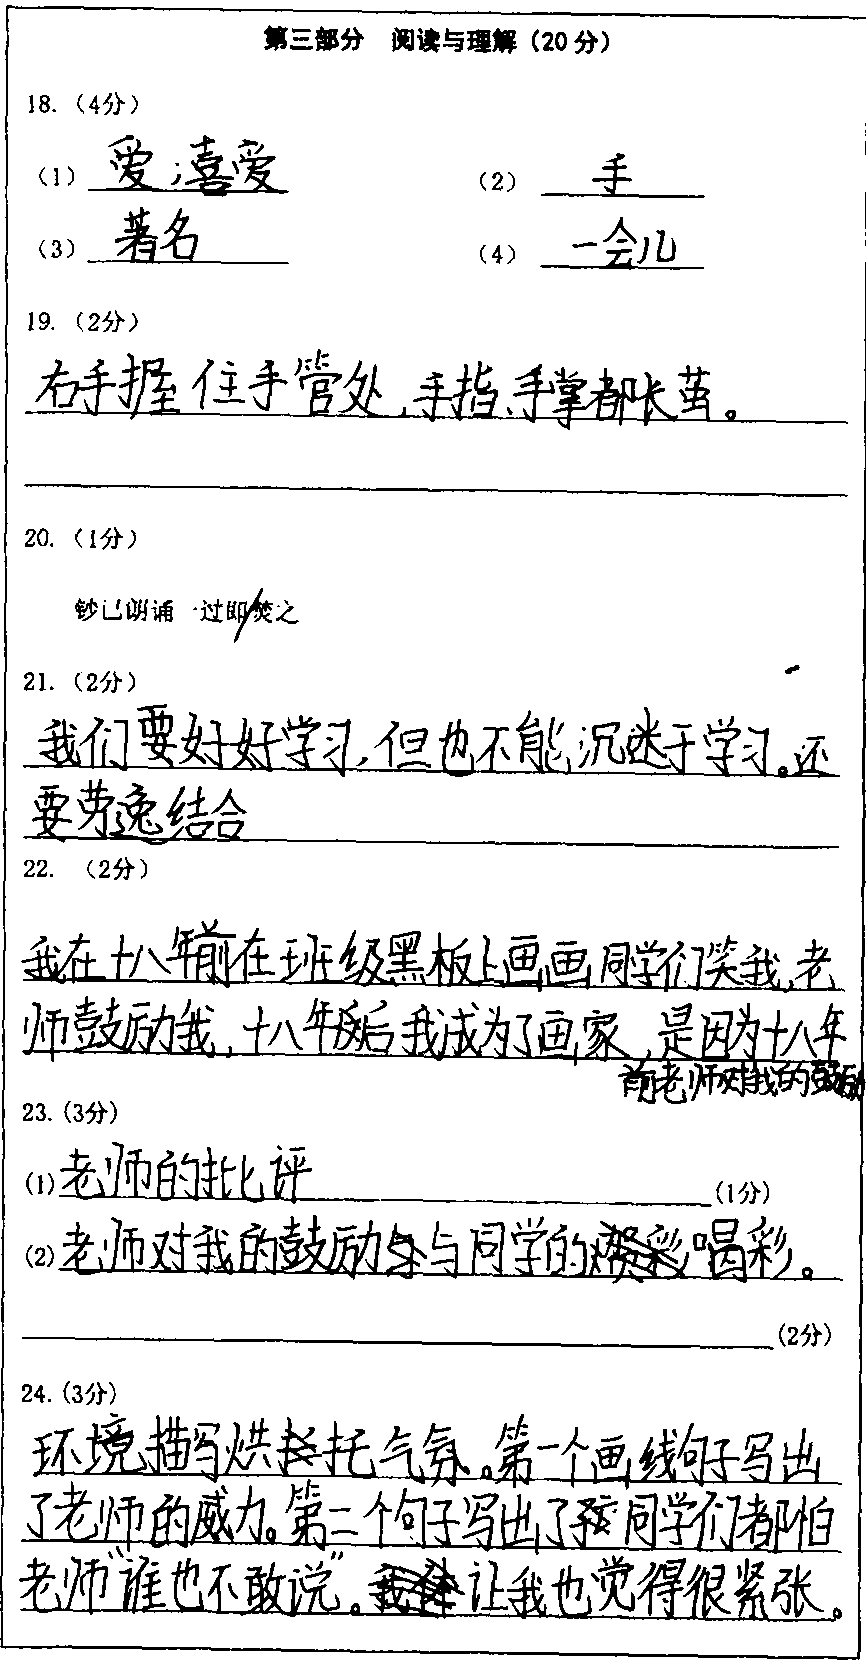 第三部分 阅读与理解（20分）
18.（4分）
（1）爱；喜爱 （2）手
（3）著名 （4）一会儿
19.（2分）
右手握住手管处，手指、手掌都长茧。
20.（1分）
钞已朗诵一过即/焚之
21.（2分）
我们要好好学习，但也不能沉迷于学习。还
要劳逸结合
22. （2分）
我在十八年前在班级黑板上画画，同学们笑我，老
师鼓励我，十八年后我成为了画家，是因为十八年
前老师对我的鼓励
23.(3分)
(1)老师的批评(1分)
(2)老师对我的鼓励与同学的喝彩。
(2分)
24.(3分)
环境描写烘托气氛。第一个画线句子写出
了老师的威力。第二个句子写出了同学们都怕
老师“谁也不敢说”。让我也觉得很紧张。